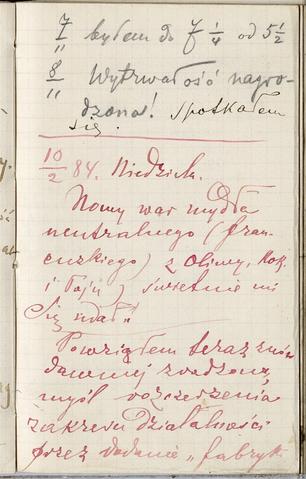 7/11 byłem do 7 1/4 od 5 1/2
8/11 Wytrwałość nagro-
dzona! Spotkałem
się.
10/2 84. Niedziela.
Nowy war mydła
neutralnego (fran-
cuzkiego) z oliwy, Kok.
i łoju, świetnie mi
się udał!
Powziąłem teraz znów
dawniej
myśl rozszerzenia
zakresu działalności
przez dodanie „fabryk